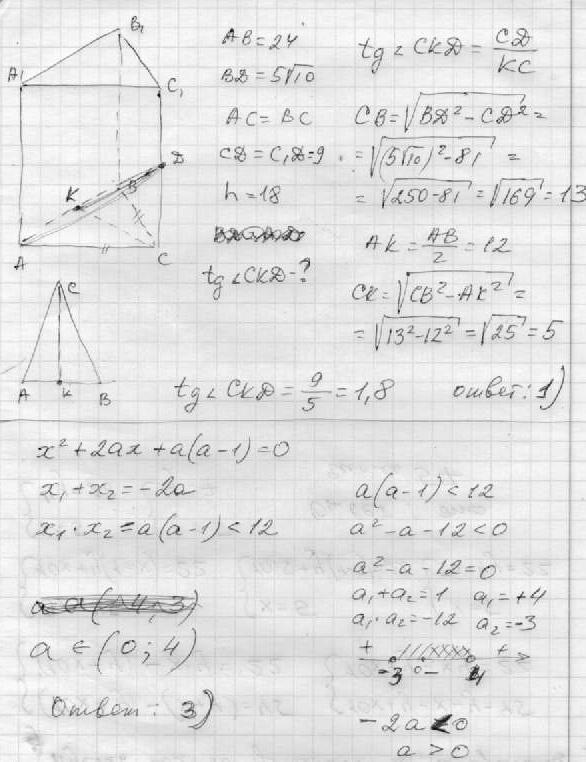 B₁
A₁
C₁
D
K
B
A
C
AB = 24
BD = 5√10
AC = BC
CD = C₁D = 9
h = 18
tg ∠ CKD - ?
tg ∠ CKD = CD/KC
CB = √(BD² - CD²) =
= √((5√10)² - 81) =
= √(250 - 81) = √169 = 13
AK = AB/2 = 12
CK = √(CB² - AK²) =
= √(13² - 12²) = √25 = 5
C
A K B
tg ∠ CKD = 9/5 = 1,8 ответ: 1)
x² + 2ax + a(a-1) = 0
x₁ + x₂ = -2a
x₁ · x₂ = a(a-1) < 12
a ∈ (0; 4)
Ответ: 3)
a(a-1) < 12
a² - a - 12 < 0
a² - a - 12 = 0
a₁ + a₂ = 1 a₁ = +4
a₁ · a₂ = -12 a₂ = -3
+ + >
-3 0 - 4
-2a < 0
a > 0